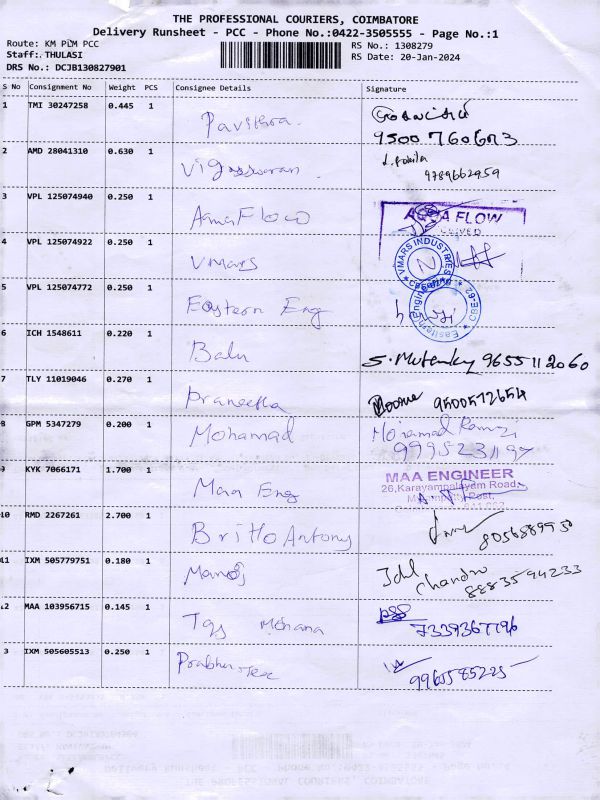 THE PROFESSIONAL COURIERS, COIMBATORE
Delivery Runsheet - PCC - Phone No.:0422-3505555 - Page No.:1
Route: KM PLM PCC
RS No.: 1308279
Staff: THULASI
RS Date: 20-Jan-2024
DRS No.: DCJB130827901
S No Consignment No Weight PCS Consignee Details Signature
1 TMI 30247258 0.445 1 Pavithra.
9500760673
2 AMD 28041310 0.630 1
9789662959
3 VPL 125074940 0.250 1 AquaFloco AQUA FLOW
4 VPL 125074922 0.250 1 Vmars VMARS INDUSTRIES
5 VPL 125074772 0.250 1 Eastern Eng
6 ICH 1548611 0.220 1 Balu S. Mutenky 9655112060
7 TLY 11019046 0.270 1 Praneetha 9500572654
8 GPM 5347279 0.200 1 Mohamad Mohamad
9995231197
9 KYK 7066171 1.700 1 Maa Eng MAA ENGINEER
26,Karayampalayam Road,
Post,
10 RMD 2267261 2.700 1 Britto Antony
8056889950
11 IXM 505779751 0.180 1 Manoj
Chandru
8883594233
12 MAA 103956715 0.145 1 Tqs Mohana
7339367196
3 IXM 505605513 0.250 1 Prabhu Tex
9965585225